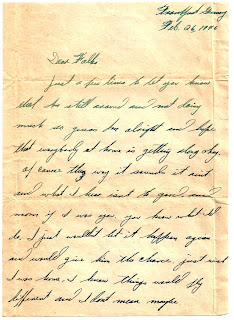 Frankfurt Germany
Feb. 26, 1946
Dear Folks
Just a few lines to let you know
that I'm still around and not doing
much so guess I'm alright and hope
that everybody at home is getting along okay.
of course they way it sounds it aint
and what I hear isnt to good and
mom if I was you you know what I'd
do, I just wouldnt let it happen again
and would give him the chance. just wish
I was home, I know things would be
different and I dont mean maybe